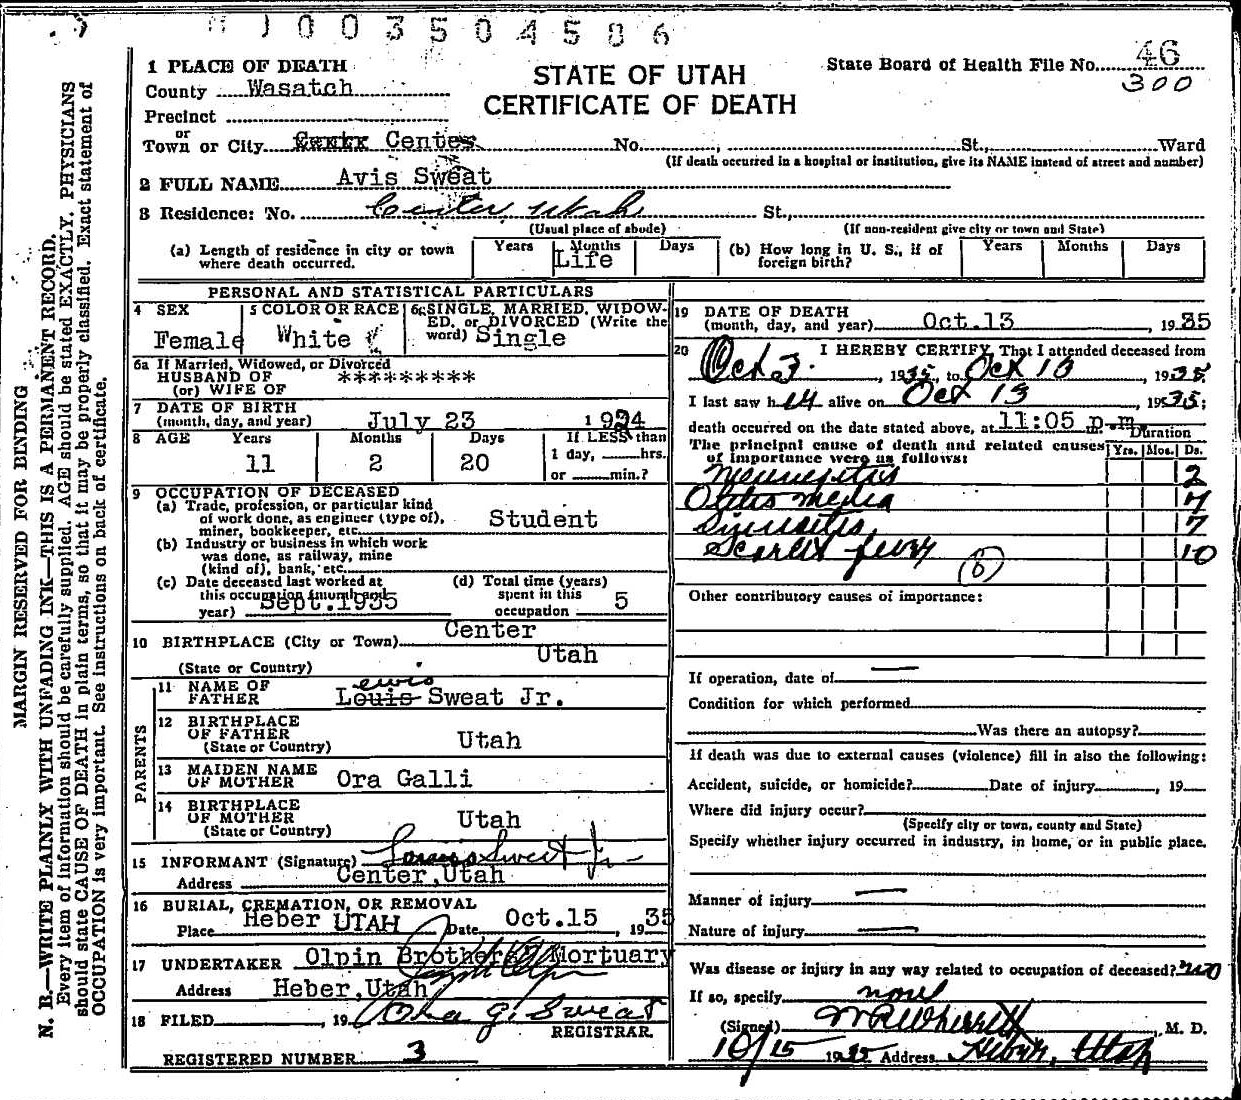 0 0 3 5 0 4 5 8 6
1 PLACE OF DEATH
County Wasatch
Precinct
or
Town or City Center No. , St., Ward
STATE OF UTAH
CERTIFICATE OF DEATH
State Board of Health File No. 46
300
(If death occurred in a hospital or institution, give its NAME instead of street and number)
2 FULL NAME Avis Sweat
3 Residence: No. Center, Utah St.,
(Usual place of abode) (If non-resident give city or town and State)
(a) Length of residence in city or town where death occurred. Years Months Days
Life
(b) How long in U. S., if of foreign birth? Years Months Days
PERSONAL AND STATISTICAL PARTICULARS
4 SEX
Female
5 COLOR OR RACE
White
6 SINGLE, MARRIED, WIDOWED, or DIVORCED (Write the word) Single
6a If Married, Widowed, or Divorced
HUSBAND OF
(or) WIFE OF *********
7 DATE OF BIRTH
(month, day, and year) July 23 1924
8 AGE Years Months Days If LESS than
11 2 20 1 day, hrs.
or min.?
9 OCCUPATION OF DECEASED
(a) Trade, profession, or particular kind
of work done, as engineer (type of),
miner, bookkeeper, etc. Student
(b) Industry or business in which work
was done, as railway, mine
(kind of), bank, etc.
(c) Date deceased last worked at
this occupation (month and
year) Sept. 1935
(d) Total time (years)
spent in this
occupation 5
10 BIRTHPLACE (City or Town) Center
(State or Country) Utah
PARENTS
11 NAME OF
FATHER Louis ewis Sweat Jr.
12 BIRTHPLACE
OF FATHER
(State or Country) Utah
13 MAIDEN NAME
OF MOTHER Ora Galli
14 BIRTHPLACE
OF MOTHER
(State or Country) Utah
15 INFORMANT (Signature) Lewis Sweat Jr
Address Center, Utah
16 BURIAL, CREMATION, OR REMOVAL
Place Heber UTAH Date Oct.15, 1935
17 UNDERTAKER Olpin Brothers Mortuary
Address Heber, Utah
18 FILED , 19 Ora G. Sweat
REGISTRAR.
REGISTERED NUMBER 3
19 DATE OF DEATH
(month, day, and year) Oct.13 , 1935
20 I HEREBY CERTIFY, That I attended deceased from
Oct 3. , 1935, to Oct 10 , 1935
I last saw her alive on Oct 13 , 1935;
death occurred on the date stated above, at 11:05 p.m.
The principal cause of death and related causes
of importance were as follows:
Duration
Yrs. Mos. Ds.
Meningitis 2
Otitis media 7
Sinusitis 7
Scarlet fever 10
Other contributory causes of importance:
If operation, date of —
Condition for which performed
Was there an autopsy?
If death was due to external causes (violence) fill in also the following:
Accident, suicide, or homicide? Date of injury , 19
Where did injury occur?
(Specify city or town, county and State)
Specify whether injury occurred in industry, in home, or in public place.
Manner of injury —
Nature of injury —
Was disease or injury in any way related to occupation of deceased? no
If so, specify none
(Signed) , M. D.
10/15 1935 Address Heber, Utah
MARGIN RESERVED FOR BINDING
N. B.—WRITE PLAINLY WITH UNFADING INK—THIS IS A PERMANENT RECORD.
Every item of information should be carefully supplied. AGE should be stated EXACTLY. PHYSICIANS
should state CAUSE OF DEATH in plain terms, so that it may be properly classified. Exact statement of
OCCUPATION is very important. See instructions on back of certificate.